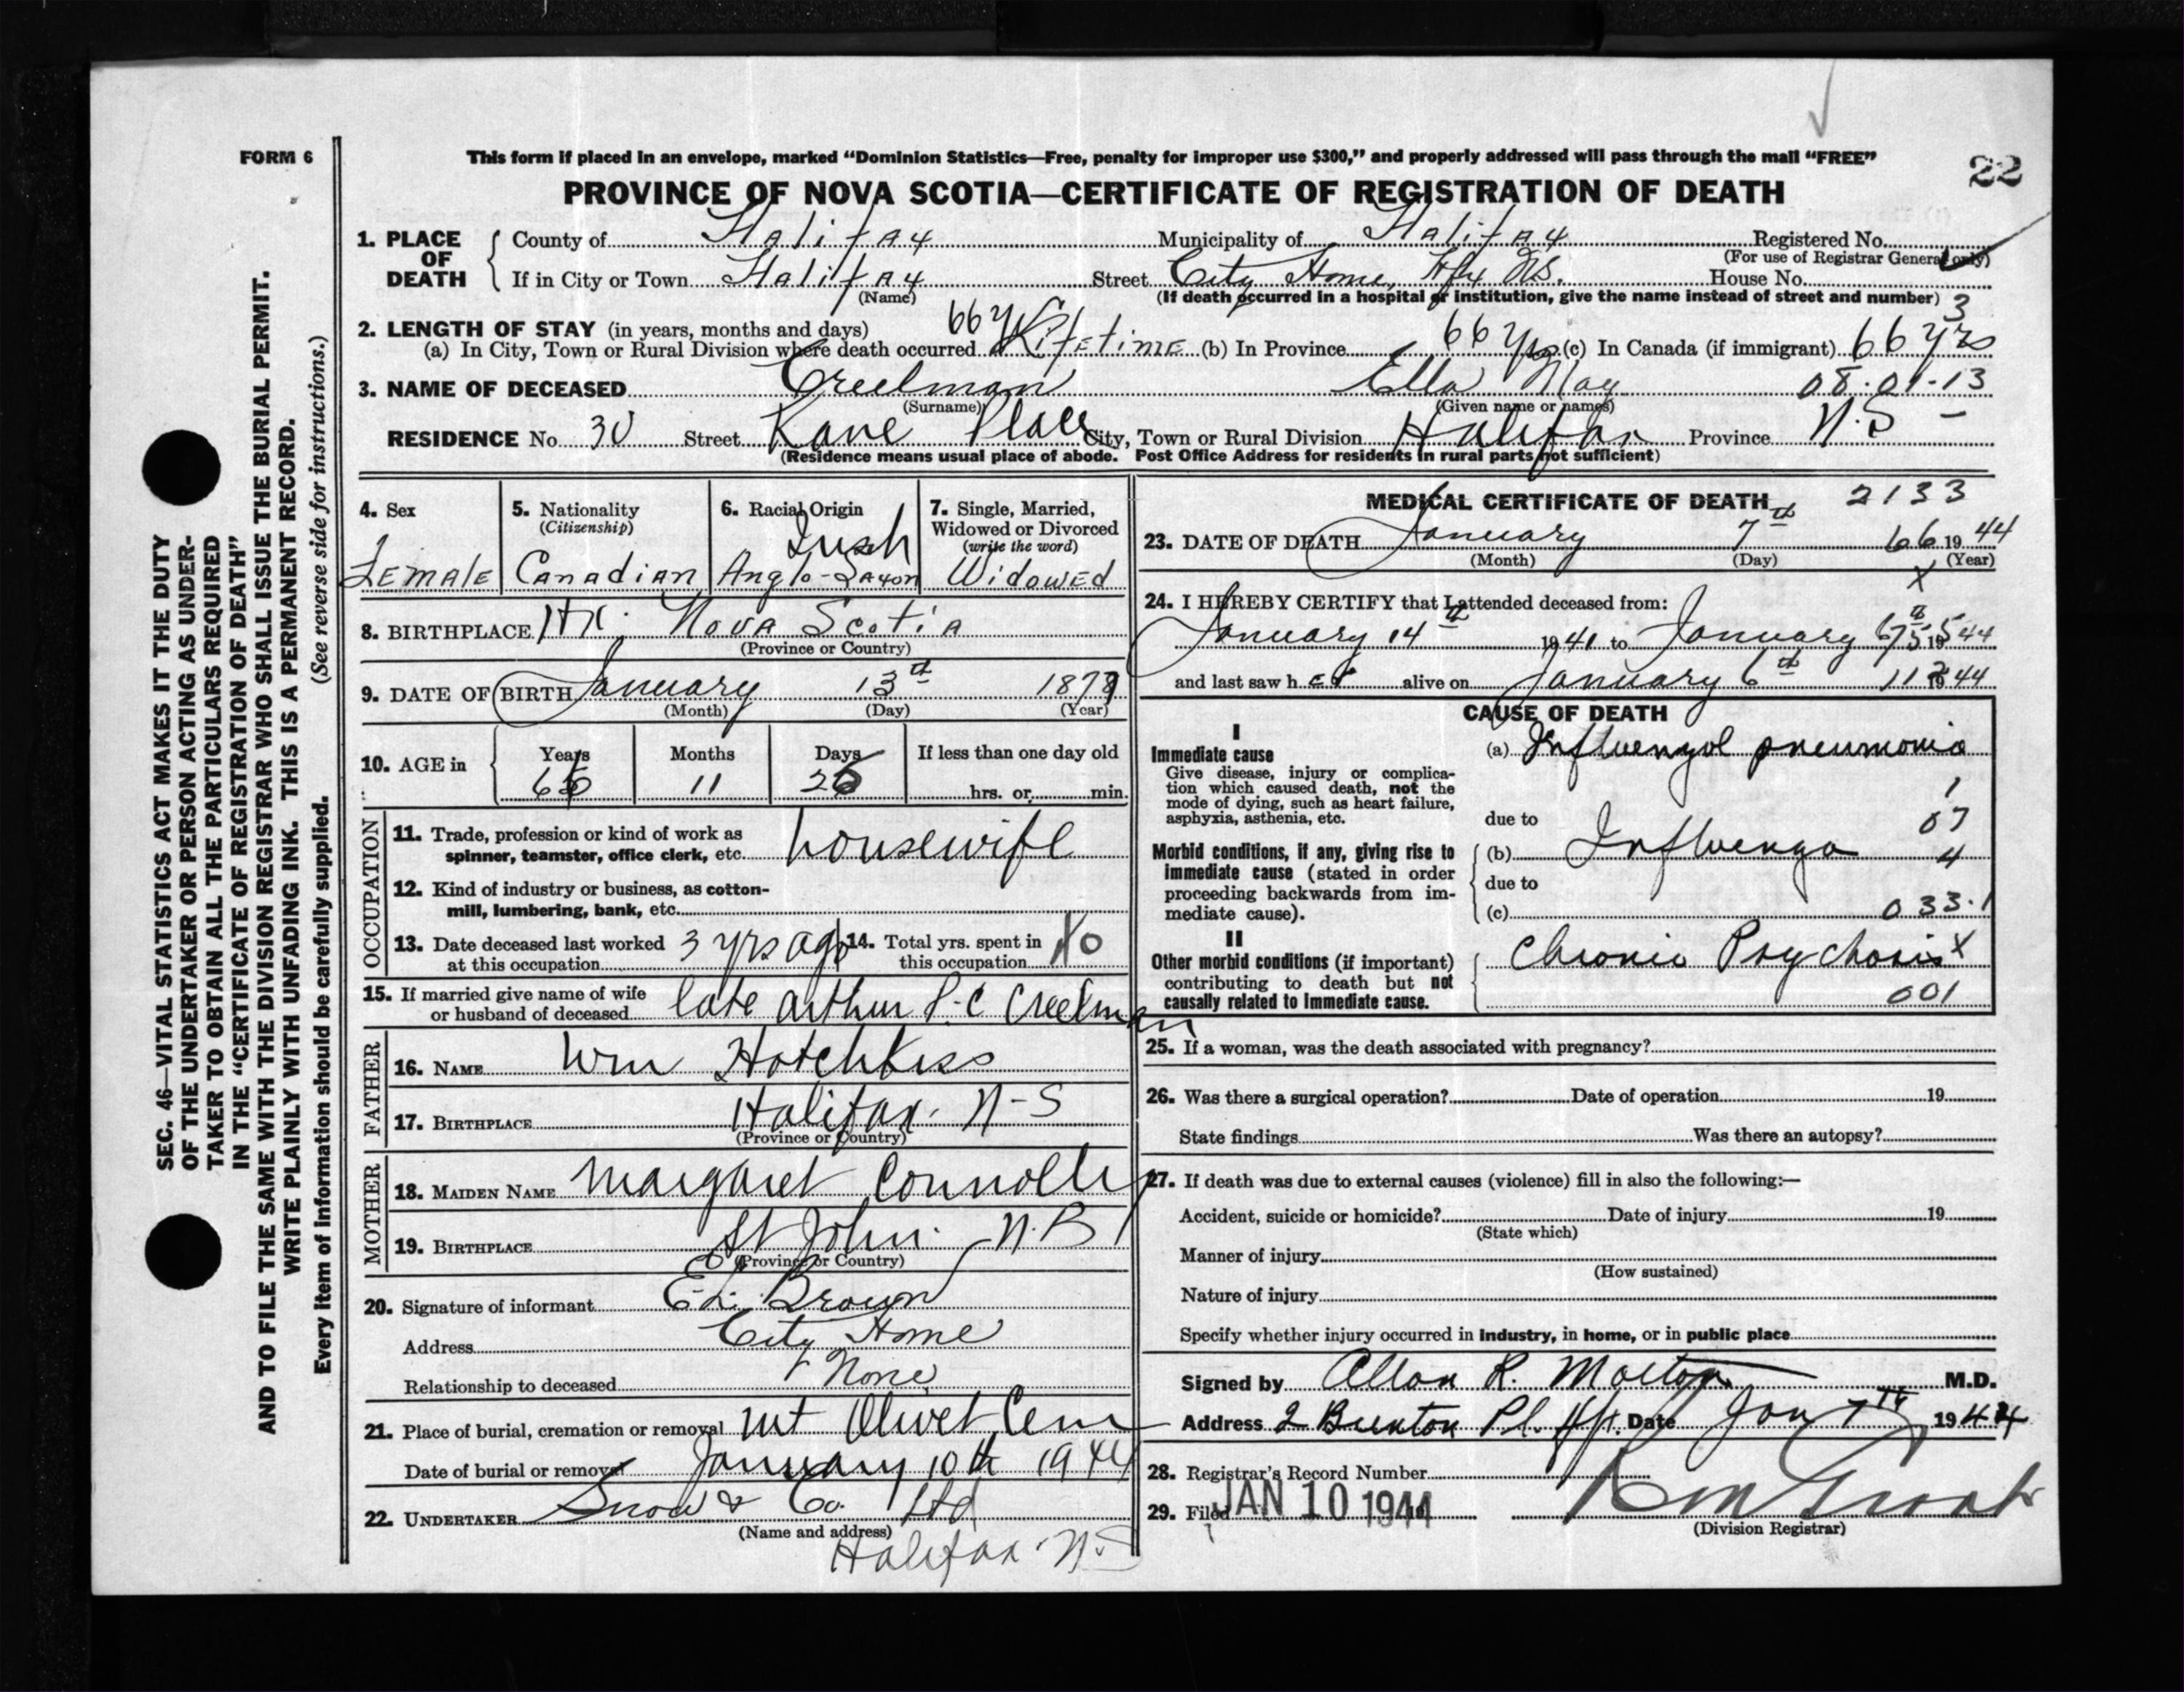 FORM 6
This form if placed in an envelope, marked “Dominion Statistics—Free, penalty for improper use $300,” and properly addressed will pass through the mail “FREE”
22
PROVINCE OF NOVA SCOTIA—CERTIFICATE OF REGISTRATION OF DEATH
1. PLACE OF DEATH
County of Halifax Municipality of Halifax Registered No.
(For use of Registrar General only)
If in City or Town Halifax Street City Home, Hfx N.S. House No.
(Name)
(If death occurred in a hospital or institution, give the name instead of street and number) 3
2. LENGTH OF STAY (in years, months and days)
(a) In City, Town or Rural Division where death occurred 66 Lifetime (b) In Province 66 yrs (c) In Canada (if immigrant) 66 yrs
3. NAME OF DECEASED Creelman Ella May 08·01-13
(Surname) (Given name or names)
RESIDENCE No. 30 Street Kane Place City, Town or Rural Division Halifax Province N.S –
(Residence means usual place of abode. Post Office Address for residents in rural parts not sufficient)
4. Sex
Female
5. Nationality
(Citizenship)
Canadian
6. Racial Origin
Irish
Anglo-Saxon
7. Single, Married,
Widowed or Divorced
(write the word)
Widowed
8. BIRTHPLACE Nova Scotia
(Province or Country)
9. DATE OF BIRTH January 13th
(Month) (Day) (Year)
10. AGE in
Years Months Days If less than one day old
11
hrs. or min.
OCCUPATION
11. Trade, profession or kind of work as
spinner, teamster, office clerk, etc. housewife
12. Kind of industry or business, as cotton-
mill, lumbering, bank, etc.
13. Date deceased last worked
at this occupation 3 yrs ago
14. Total yrs. spent in
this occupation
15. If married give name of wife
or husband of deceased late Arthur P. C Creelman
FATHER
16. NAME Wm Hotchkiss
17. BIRTHPLACE Halifax. N-S
(Province or Country)
MOTHER
18. MAIDEN NAME Margaret Connolly
19. BIRTHPLACE St John. N.B
(Province or Country)
20. Signature of informant Ed. Brown
Address City Home
Relationship to deceased None
21. Place of burial, cremation or removal Mt Olivet Cem
Date of burial or removal January 10th 1944
22. UNDERTAKER Snow & Co. Ltd
(Name and address)
Halifax N.S
MEDICAL CERTIFICATE OF DEATH 2133
23. DATE OF DEATH January 7th 66 1944
(Month) (Day) (Year)
x
24. I HEREBY CERTIFY that I attended deceased from:
January 14th 1941 to January 1944
and last saw her alive on January 6th 1944
CAUSE OF DEATH
I
Immediate cause
Give disease, injury or complica-
tion which caused death, not the
mode of dying, such as heart failure,
asphyxia, asthenia, etc.
(a) Influenzal pneumonia
1
due to 07
Morbid conditions, if any, giving rise to
immediate cause (stated in order
proceeding backwards from im-
mediate cause).
(b) Influenza 4
due to
(c) 033·1
II
Other morbid conditions (if important)
contributing to death but not
causally related to immediate cause.
Chronic Psychosis x
001
25. If a woman, was the death associated with pregnancy?
26. Was there a surgical operation? Date of operation 19
State findings Was there an autopsy?
27. If death was due to external causes (violence) fill in also the following:—
Accident, suicide or homicide? Date of injury 19
(State which)
Manner of injury
(How sustained)
Nature of injury
Specify whether injury occurred in industry, in home, or in public place
Signed by Allan R. Morton M.D.
Address 2 Brenton Pl. Hfx. Date Jan 7th 1944
28. Registrar's Record Number
29. Filed JAN 10 1944
(Division Registrar)
SEC. 46—VITAL STATISTICS ACT MAKES IT THE DUTY
OF THE UNDERTAKER OR PERSON ACTING AS UNDER-
TAKER TO OBTAIN ALL THE PARTICULARS REQUIRED
IN THE “CERTIFICATE OF REGISTRATION OF DEATH”
AND TO FILE THE SAME WITH THE DIVISION REGISTRAR WHO SHALL ISSUE THE BURIAL PERMIT.
WRITE PLAINLY WITH UNFADING INK. THIS IS A PERMANENT RECORD.
Every item of information should be carefully supplied. (See reverse side for instructions.)